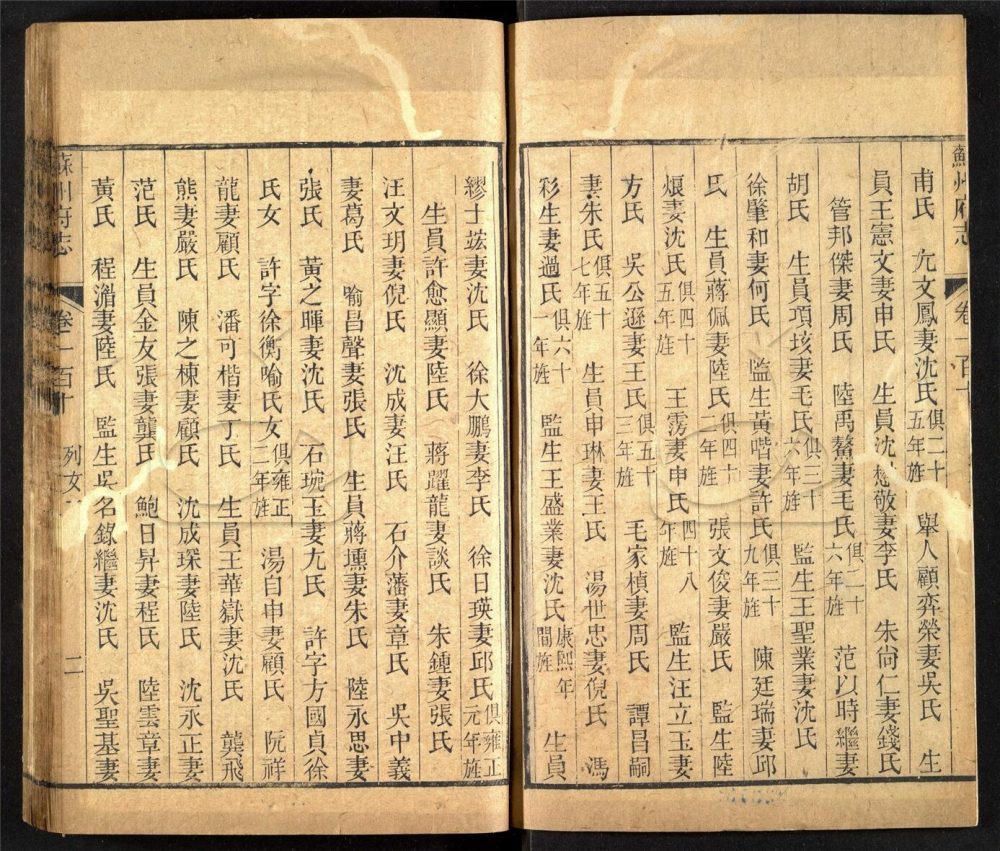 蘇州府志 卷一百十
甫氏 尤文鳳妻沈氏俱二十五年旌 舉人顧弈榮妻吳氏 生
員王憲文妻申氏 生員沈懋敬妻李氏 朱尙仁妻錢氏
管邦傑妻周氏 陸禹鰲妻毛氏俱二十六年旌 范以時繼妻
胡氏 生員項垓妻毛氏俱三十六年旌 監生王聖業妻沈氏
徐肇和妻何氏 監生黃喈妻許氏俱三十九年旌 陳廷瑞妻邱
氏 生員蔣佩妻陸氏俱四十二年旌 張文俊妻嚴氏 監生陸
烺妻沈氏俱四十五年旌 王雱妻申氏四十八年旌 監生汪立玉妻
方氏 吳公遜妻王氏俱五十三年旌 毛家楨妻周氏 譚昌嗣
妻朱氏俱五十七年旌 生員申琳妻王氏 湯世忠妻倪氏 馮
彩生妻過氏俱六十一年旌 監生王盛業妻沈氏康熙年間旌 生員
繆士竑妻沈氏 徐大鵬妻李氏 徐日瑛妻邱氏俱雍正元年旌
生員許愈顯妻陸氏 蔣躍龍妻談氏 朱鍾妻張氏
汪文玥妻倪氏 沈成妻汪氏 石介藩妻章氏 吳中義
妻葛氏 喻昌聲妻張氏 生員蔣壎妻朱氏 陸永思妻
張氏 黃之暉妻沈氏 石琬玉妻尤氏 許字方國貞徐
氏女 許字徐衡喻氏女俱雍正二年旌 湯自申妻顧氏 阮祥
龍妻顧氏 潘可楷妻丁氏 生員王華嶽妻沈氏 龔飛
熊妻嚴氏 陳之棟妻顧氏 沈成琛妻陸氏 沈永正妻
范氏 生員金友張妻龔氏 鮑日昇妻程氏 陸雲章妻
黃氏 程澹妻陸氏 監生吳名錄繼妻沈氏 吳聖基妻
蘇州府志 卷一百十 列女 二